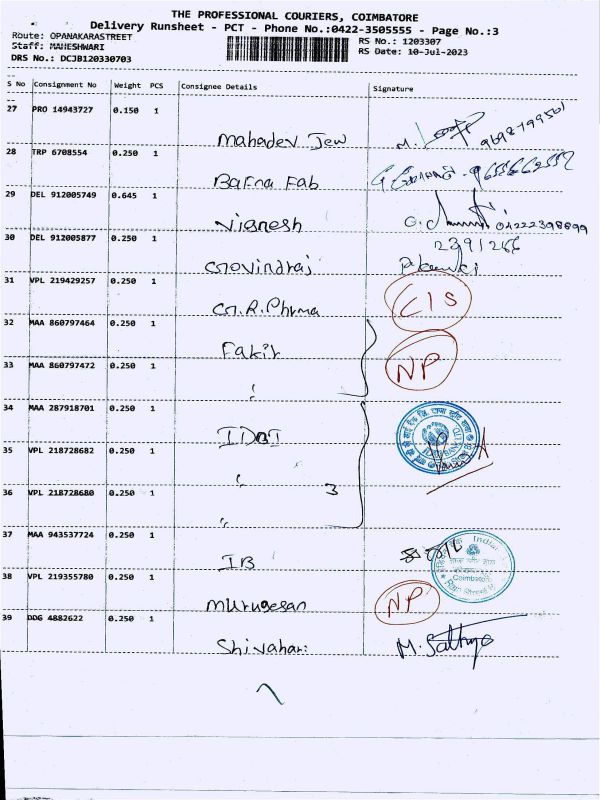 THE PROFESSIONAL COURIERS, COIMBATORE
Delivery Runsheet - PCT - Phone No.:0422-3505555 - Page No.:3
Route: OPANAKARASTREET
Staff: MAHESHWARI
DRS No.: DCJB120330703
RS No.: 1203307
RS Date: 10-Jul-2023
S No Consignment No Weight PCS Consignee Details Signature
27 PRO 14943727 0.150 1
Mahadev Jew M.
28 TRP 6708554 0.250 1
Bafna Fab
29 DEL 912005749 0.645 1
Vignesh
30 DEL 912005877 0.250 1
2391266
Govindraj
31 VPL 219429257 0.250 1
G.R. Phrma CIS
32 MAA 860797464 0.250 1
Fakir
33 MAA 860797472 0.250 1
NP
"
34 MAA 287918701 0.250 1
IDBI
35 VPL 218728682 0.250 1
"
36 VPL 218728680 0.250 1
3
"
37 MAA 943537724 0.250 1
IB
Indian
Coimbatore
38 VPL 219355780 0.250 1
Murugesan NP
39 DDG 4882622 0.250 1
Shivahari M. Sathya